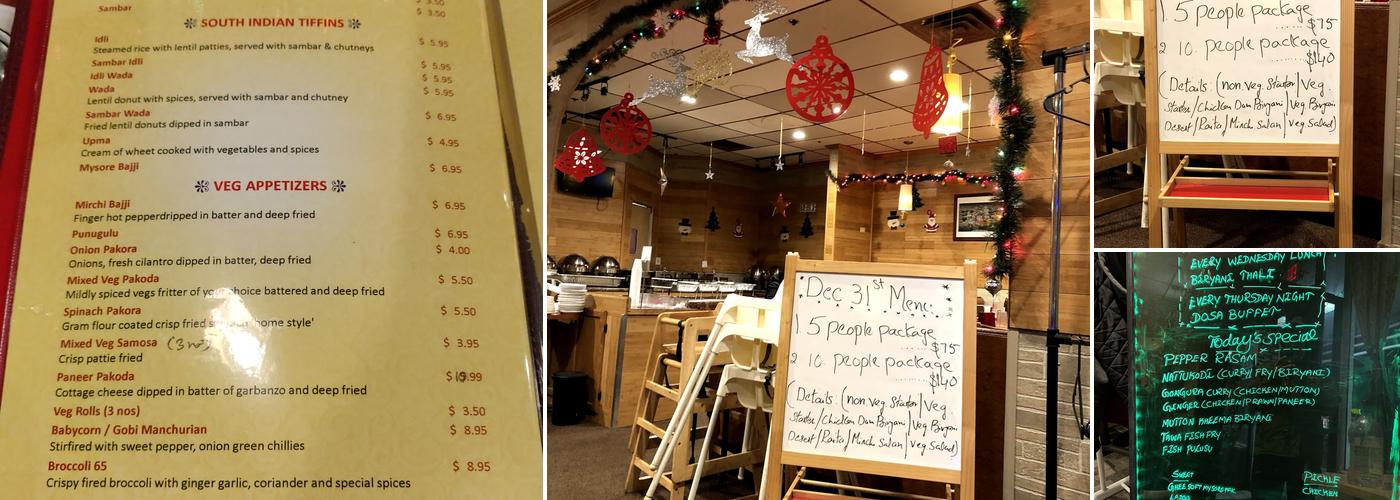 Sambar
$ 3.50
$ 3.50
SOUTH INDIAN TIFFINS
Idli $ 5.95
Steamed rice with lentil patties, served with sambar & chutneys
Sambar Idli $ 5.95
Idli Wada $ 5.95
Wada $ 5.95
Lentil donut with spices, served with sambar and chutney
Sambar Wada $ 6.95
Fried lentil donuts dipped in sambar
Upma $ 4.95
Cream of wheet cooked with vegetables and spices
Mysore Bajji $ 6.95
VEG APPETIZERS
Mirchi Bajji $ 6.95
Finger hot pepperdripped in batter and deep fried
Punugulu $ 6.95
Onion Pakora $ 4.00
Onions, fresh cilantro dipped in batter, deep fried
Mixed Veg Pakoda $ 5.50
Mildly spiced vegs fritter of your choice battered and deep fried
Spinach Pakora $ 5.50
Gram flour coated crisp fried 'home style'
Mixed Veg Samosa $ 3.95
Crisp pattie fried
Paneer Pakoda
Cottage cheese dipped in batter of garbanzo and deep fried
Veg Rolls (3 nos) $ 3.50
Babycorn / Gobi Manchurian $ 8.95
Stirfired with sweet pepper, onion green chillies
Broccoli 65 $ 8.95
Crispy fired broccoli with ginger garlic, coriander and special spices
Dec 31st Menu:
1. 5 people package
$75
2 10. people package
$140
(Details: (non veg. Starter/ Veg.
Starter/Chicken Dum Biryani/ Veg Biryani
Desert/Raita/Mirch Salan/ Veg Salad)
1. 5 people package
$75
2 10. people package
$140
(Details: (non veg. Starter/ Veg.
Starter/Chicken Dum Biryani/ Veg Biryani
Desert/Raita/Mirch Salan/ Veg Salad)
EVERY WEDNESDAY LUNCH
BIRYANI THALI
EVERY THURSDAY NIGHT
DOSA BUFFET
Today's Special
PEPPER RASAM
NATTUKODI (CURRY/FRY/BIRYANI)
GONGURA CURRY (CHICKEN/MUTTON)
GINGER (CHICKEN/PRAWN/PANEER)
MUTTON KHEEMA BIRYANI
TAWA FISH FRY
FISH PULUSU
SWEET
GHEE SOFT MYSORE PAK
LADOO
PICKLE
CHICKEN